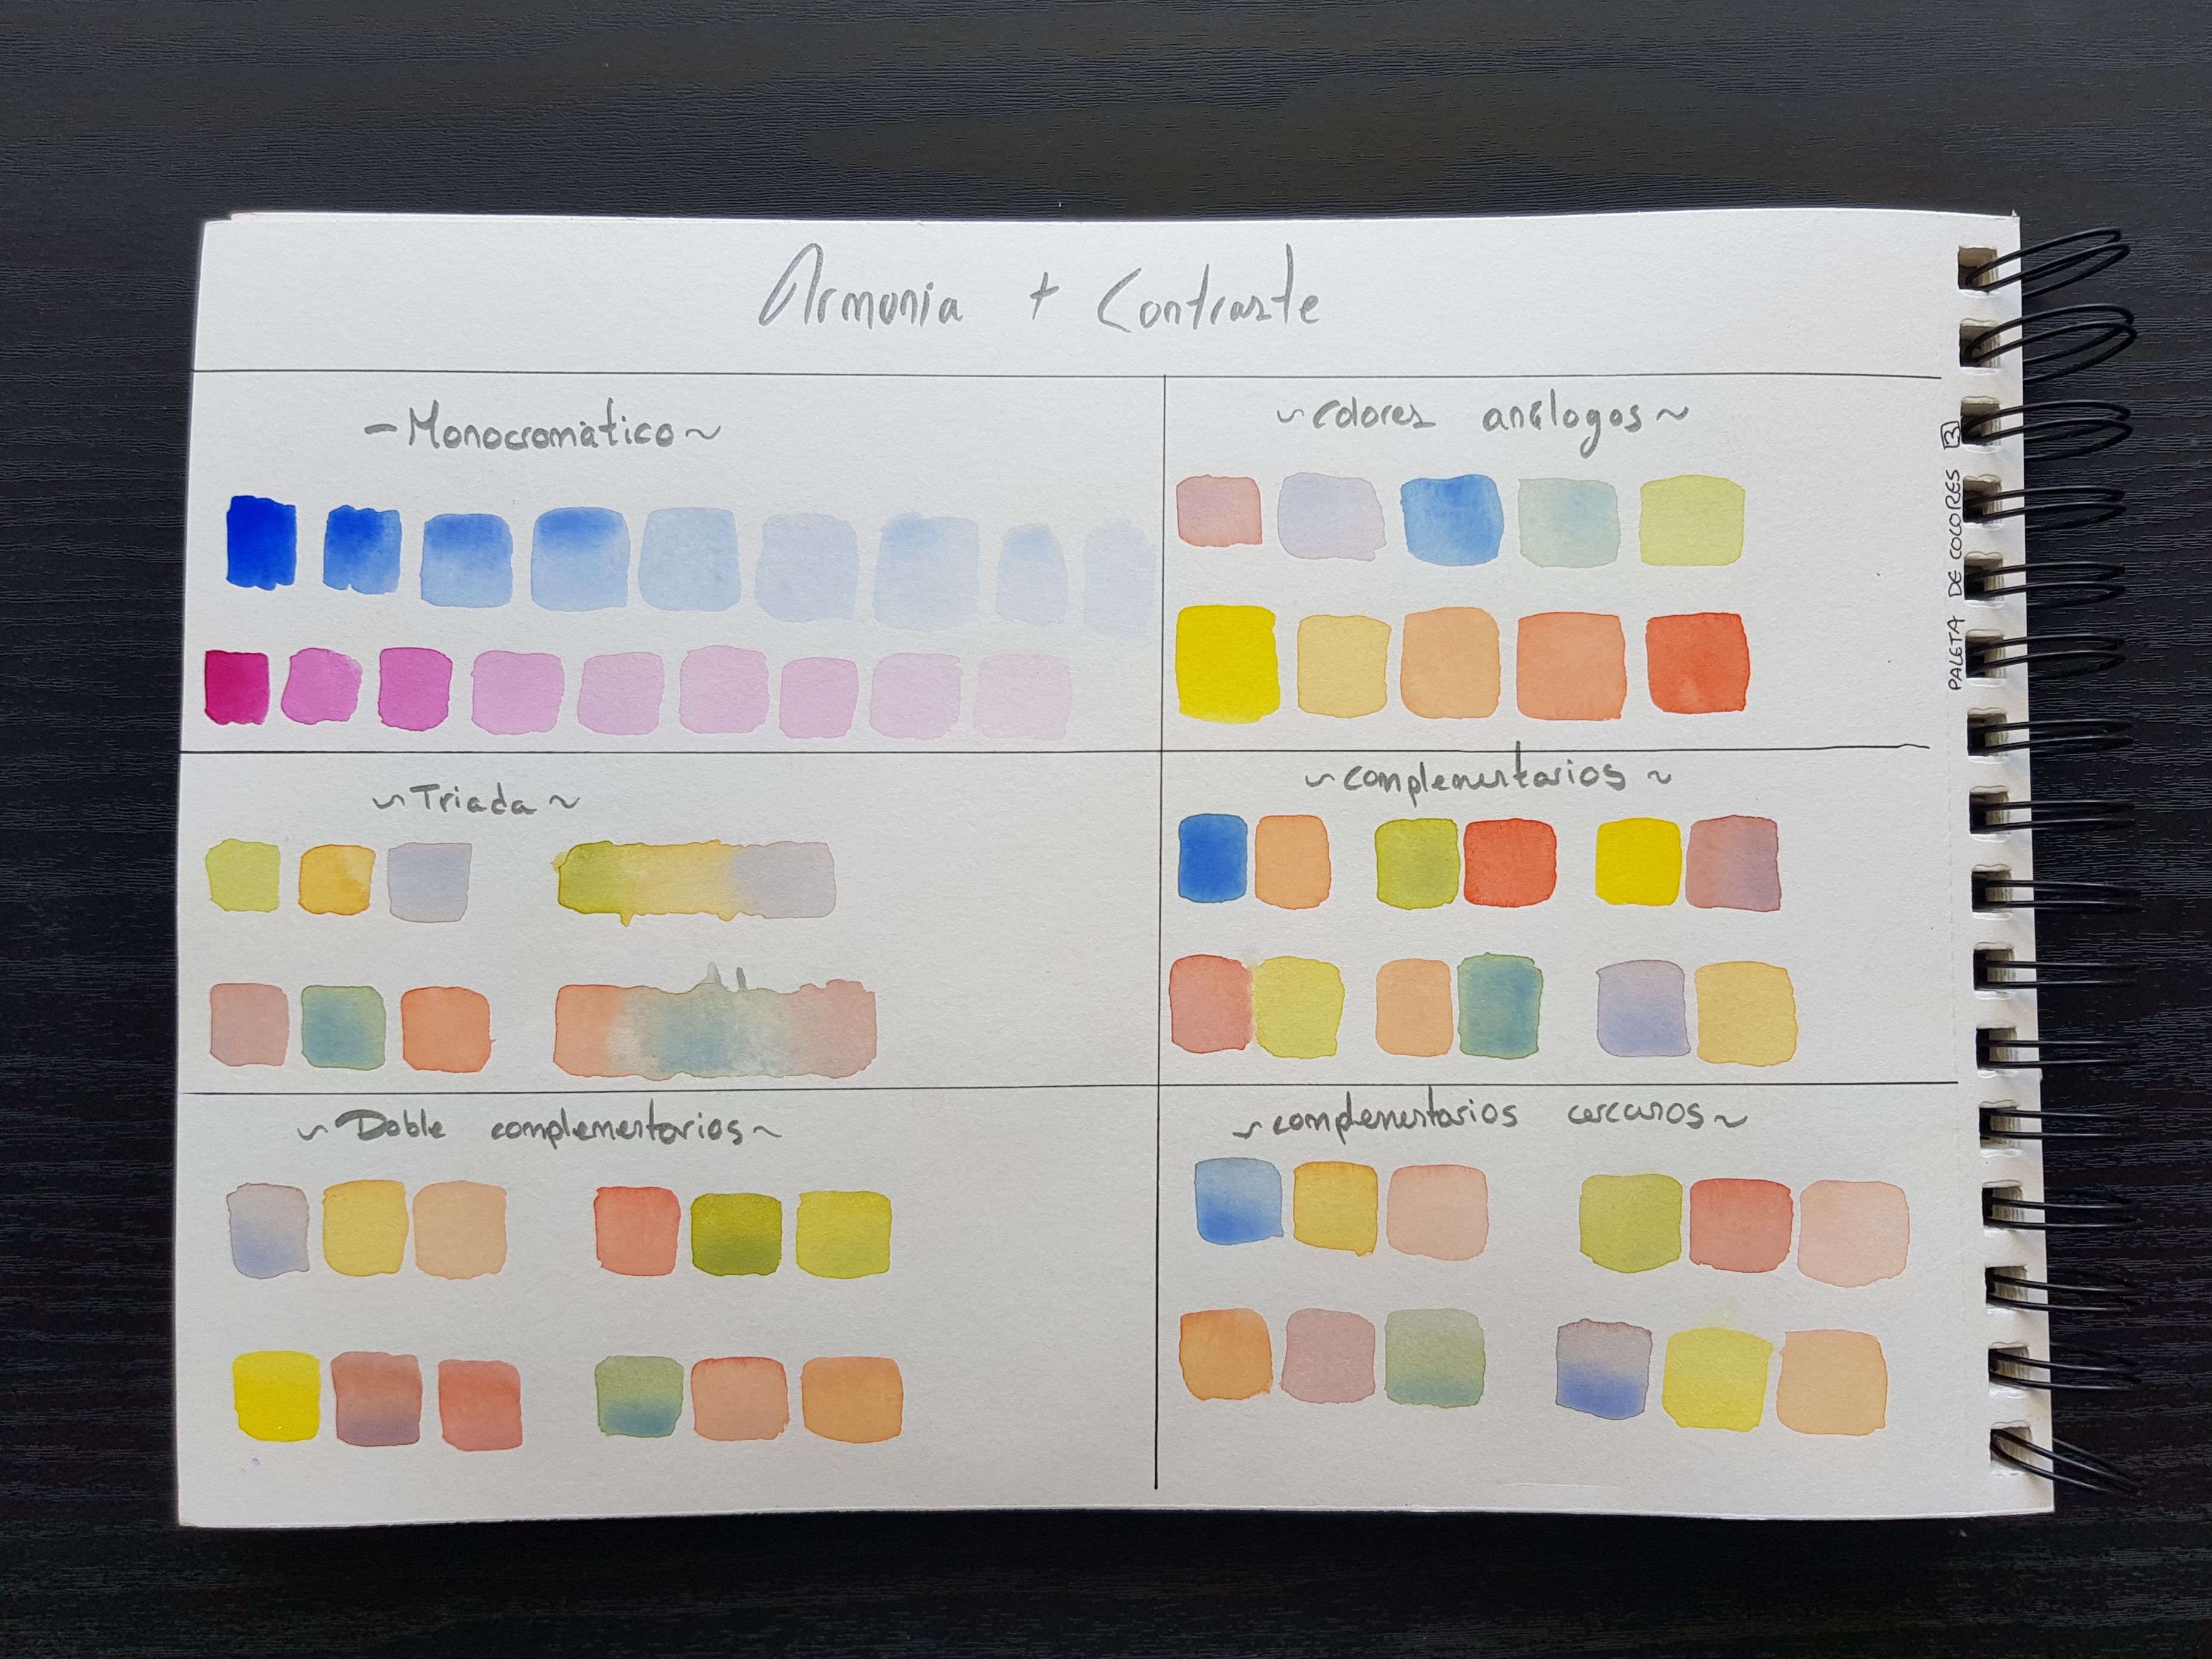 Armonia + Contraste
- Monocromàtico ~
~ Colores análogos ~
~ Triada ~
~ complementarios ~
~ Doble complementarios ~
~ complementarios cercanos ~
PALETA DE COLORES 3